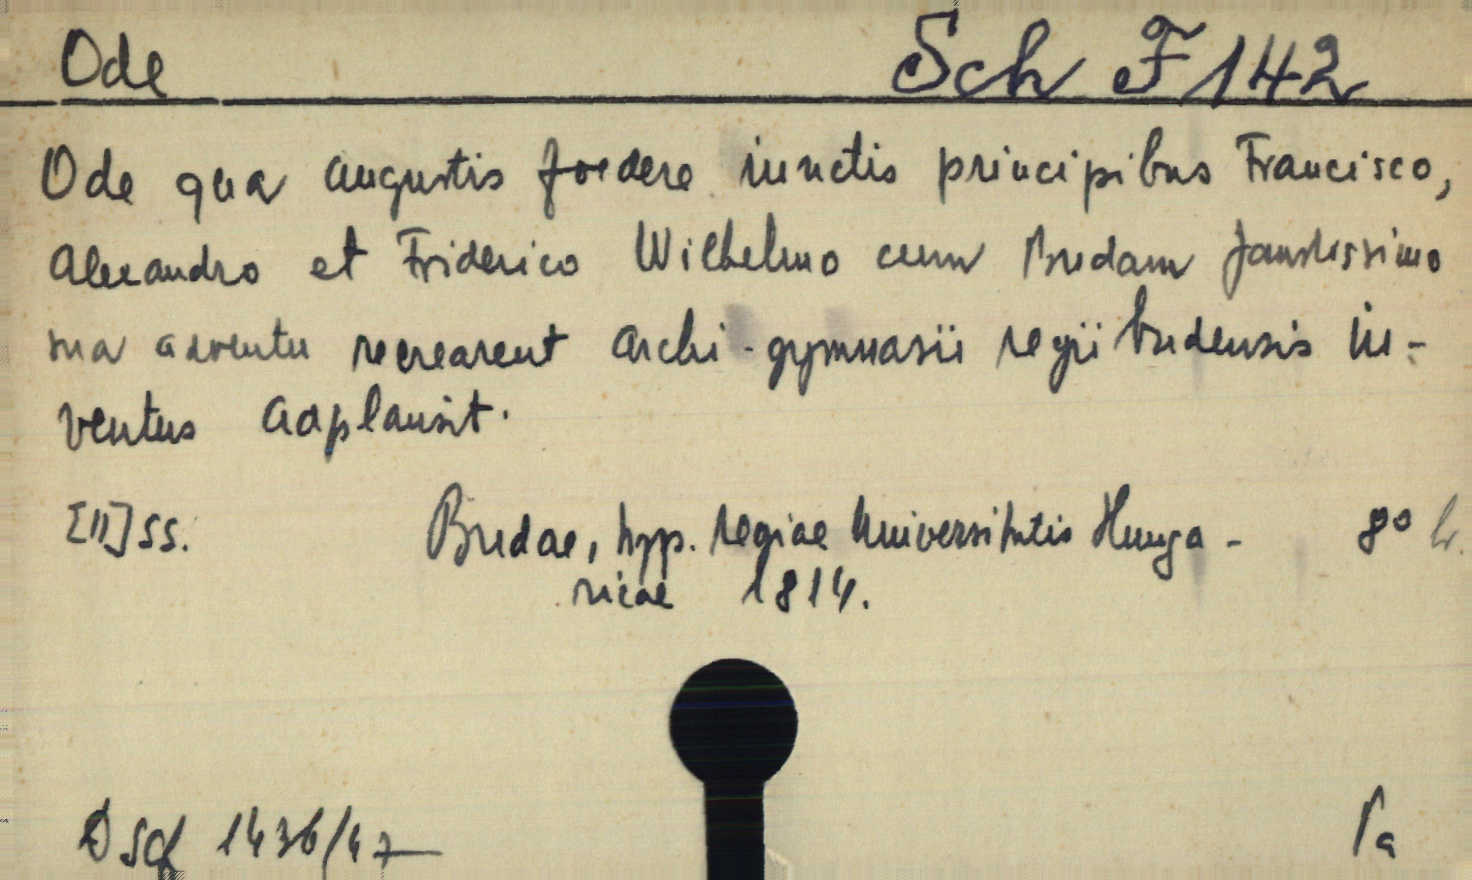 Ode Sch F 142
Ode qua augustis foedere iunctis principibus Francisco,
Alexandro et Friderico Wilhelmo cum Budam faustissimo
sua adventu recrearent archi-gymnasii regii budensis iu-
ventus adplausit.
[11] ss. Budae, typ. regiae Universitatis Hunga- 8°
ricae 1814.
1436/47